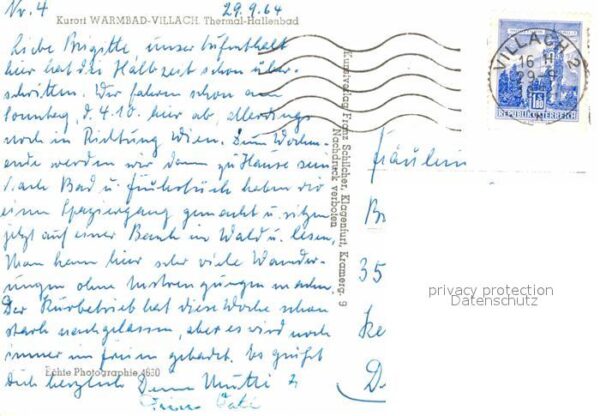 Nr. 4
29.9.64
Kurort WARMBAD-VILLACH. Thermal-Hallenbad
Liebe Brigitte unser Aufenthalt
hier hat die Halbzeit schon über-
schritten. Wir fahren schon am
Sonntag, d. 4.10. hier ab, allerdings
noch in Richtung Wien. Zum Wochen-
ende werden wir dann zu Hause sein
Nach Bad u. Frühstück haben wir
einen Spaziergang gemacht u. sitzen
jetzt auf einer Bank im Wald u. lesen.
Man kann hier sehr viele Wander-
ungen ohne Anstrengungen machen.
Der Kurbetrieb hat diese Woche schon
stark nachgelassen, aber es wird noch
immer im freien gebadet. Es grüßt
Dich herzlich Deine Mutti u.
Echte Photographie 4630
Kunstverlag Franz Schilcher, Klagenfurt, Kramerg. 9
Nachdruck verboten
VILLACH 2
16 H
29
1.80
REPUBLIK ÖSTERREICH
Fräulein
Br
35
Ke
D
privacy protection
Datenschutz